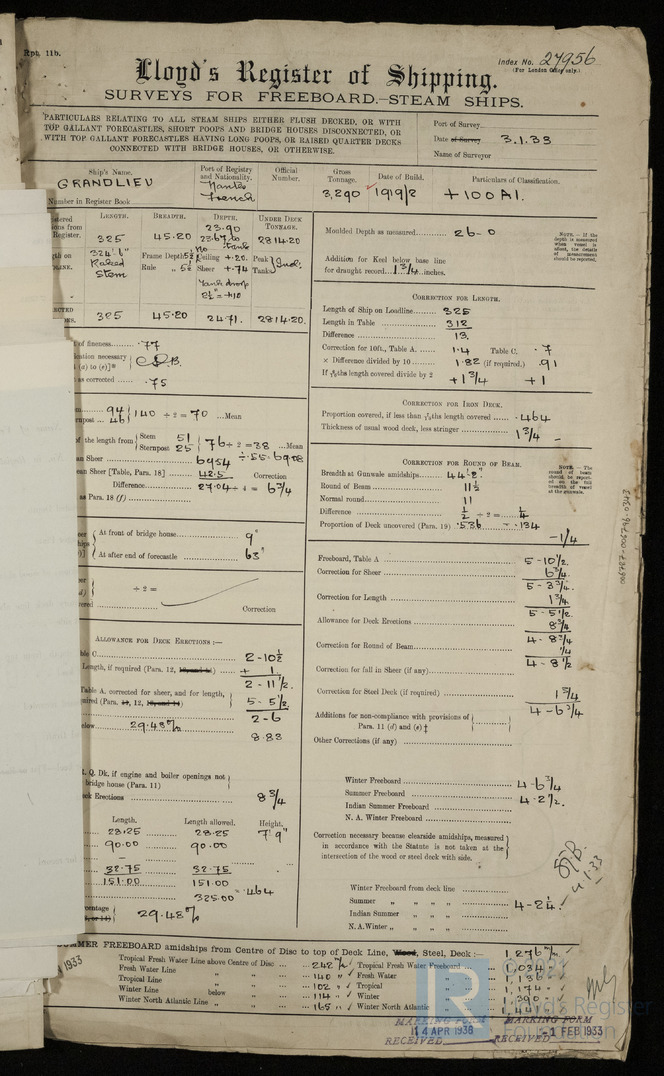 Rpt. 11b.
Index No. 27956
(For London Office only.)
Lloyd's Register of Shipping.
SURVEYS FOR FREEBOARD.—STEAM SHIPS.
PARTICULARS RELATING TO ALL STEAM SHIPS EITHER FLUSH DECKED, OR WITH
TOP GALLANT FORECASTLES, SHORT POOPS AND BRIDGE HOUSES DISCONNECTED, OR
WITH TOP GALLANT FORECASTLES HAVING LONG POOPS, OR RAISED QUARTER DECKS
CONNECTED WITH BRIDGE HOUSES, OR OTHERWISE.
Port of Survey
Date of Survey 3.1.33
Name of Surveyor
Ship's Name. Port of Registry and Nationality. Official Number. Gross Tonnage. Date of Build. Particulars of Classification.
GRANDLIEU Nantes French 3,290 1919/2 +100A1.
Number in Register Book
LENGTH. BREADTH. DEPTH. UNDER DECK TONNAGE.
325 45.20 23.90 23.67 to no tank 2814.20
324'.6" Raked Stem
Frame Depth 5½ Ceiling +.20. Peak Tanks
Rule " 5½ Sheer +.74
Tank drop 2½" = +10
325 45.20 24.71. 2814.20.
of fineness .77
as corrected .75
94 46 140 ÷ 2 = 70 ...Mean
the length from Stem 51 Sternpost 25 76 ÷ 2 = 38 ...Mean
Sheer 69.54 ÷.55 = 69.08
Sheer [Table, Para. 18] 42.5 Correction
Difference 27.04 ÷ 4 = 6¾
as Para. 18 (f)
At front of bridge house 9"
At after end of forecastle 63"
÷ 2 =
Correction
ALLOWANCE FOR DECK ERECTIONS :—
C 2-10½
Length, if required (Para. 12, + 1.
2 - 11½.
Table A. corrected for sheer, and for length, 5 - 5½
2 - 6
29.48% 8.83
Q. Dk, if engine and boiler openings not
bridge house (Para. 11)
Erections 8¾
Length. Length allowed. Height.
28.25 28.25 7'9"
90.00 90.00
32.75 32.75
151.00 151.00
325.00 = .464
29.48%
Moulded Depth as measured 26-0
Addition for Keel below base line
for draught record 1¾ inches.
NOTE.—If the depth is measured when vessel is afloat, the details of measurement should be reported.
CORRECTION FOR LENGTH.
Length of Ship on Loadline 325
Length in Table 312
Difference 13.
Correction for 10ft., Table A. 1.4 Table C. .7
× Difference divided by 10 1.82 (if required.) .91
If 6/10ths length covered divide by 2 +1¾ +1
CORRECTION FOR IRON DECK.
Proportion covered, if less than 7/10ths length covered .464
Thickness of usual wood deck, less stringer 1¾ —
CORRECTION FOR ROUND OF BEAM.
Breadth at Gunwale amidships 44'2"
Round of Beam 11½
Normal round 11
Difference ½ ÷ 2 = ¼
Proportion of Deck uncovered (Para. 19) .536 = .134
-¼
NOTE.—The round of beam should be reported on the full breadth of vessel at the gunwale.
Freeboard, Table A 5-10½.
Correction for Sheer 6¾.
5-3¾.
Correction for Length 1¾.
5-5½.
Allowance for Deck Erections 8¾
4-8¾
Correction for Round of Beam ¼
4-8½
Correction for fall in Sheer (if any)
Correction for Steel Deck (if required) 1¾
4-6¾
Additions for non-compliance with provisions of
Para. 11 (d) and (e) †
Other Corrections (if any)
Winter Freeboard 4-6¾
Summer Freeboard 4-2½.
Indian Summer Freeboard
N. A. Winter Freeboard
Correction necessary because clearside amidships, measured
in accordance with the Statute is not taken at the
intersection of the wood or steel deck with side.
Winter Freeboard from deck line
Summer " " " " 4-2¼.
Indian Summer " " "
N.A. Winter " " " "
4.1.33
SUMMER FREEBOARD amidships from Centre of Disc to top of Deck Line, Wood, Steel, Deck :— 1276 m/m
Tropical Fresh Water Line above Centre of Disc 242 m/m Tropical Fresh Water Freeboard 1034
Fresh Water Line " " 140 Fresh Water " 1136
Tropical Line " " 102 Tropical " 1174
Winter Line below " 114 Winter " 1390
Winter North Atlantic Line " " 165 Winter North Atlantic "
MARKING FORM
14 APR 1938
RECEIVED
MARKING FORM
1 FEB 1933
RECEIVED
1933
002837-002846-0342
LR
© 2021
Lloyd's Register
Foundation